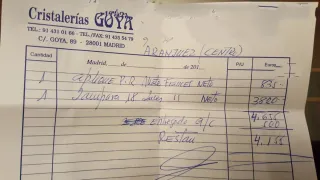 Cristalerías GOYA
TEL.: 91 431 01 66 - TEL./FAX: 91 431 54 79
C/. GOYA, 89 - 28001 MADRID
ARANJUEZ (CENTRO)
Cantidad Madrid, de de 201 Ptas.
1 aplique P.R. Neto 835
1 Lampara 18 luces 11 Neto 3800
4.635
entregado a/c 500
Restan 4.135